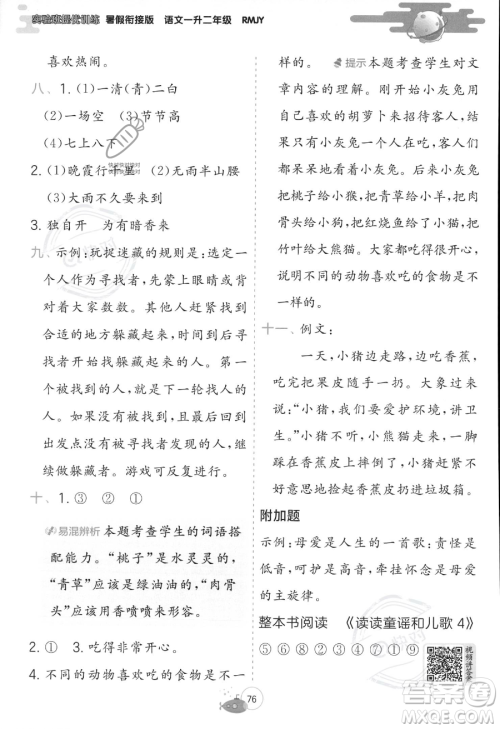 实验班提优训练 暑假衔接版 语文一升二年级 RMJY
八、1. (1)一清(青)二白
(2)一场空 (3)节节高
(4)七上八下
2. (1)晚霞行千里 (2)无雨半山腰
(3)大雨不久要来到
3. 独自开 为有暗香来
九、示例:玩捉迷藏的规则是:选定一
个人作为寻找者,先蒙上眼睛背
对着大家数数。其他人赶紧找到
合适的地方躲藏起来,时间到以
后,寻找者去找躲藏起来的人。
第一个被找到的人,或者所有人
都被找到,就成为下一轮找人的
人。如果没被找到的人又回到
出发点没被寻找者发现,就可以
继续做躲藏者。游戏可反复进行。
十、1. ③ ② ①
易混辨析 本题考查学生的词语搭
配能力。“桃子”是水灵灵的,
“青草”应该是绿油油的,“肉骨
头”应该用香喷喷来形容。
2. 开心。 3. 非常开心。
4. 不同的动物喜欢吃的食物是不一
样的。
提示 本题考查学生对短文
内容的理解。刚开始小灰兔用
自己喜欢的胡萝卜来招待朋友
们,但是大家都不吃,小灰兔
起先不明白,后来才知道不同
的动物喜欢吃的食物是不同
的,因此后来,小灰兔把桃子
拿给小猴,把青草拿给小羊,肉
骨头给小狗,红烧鱼给小猫,把
竹叶给大熊猫。大家都吃得
很开心。从中小灰兔明白了,
不同的动物喜欢吃的食物是不
一样的。
十一、例文:
一天,小猪边走路,边吃香蕉,
吃完便把果皮随手一扔。大象过来
说:“小猪,我们要爱护环境,讲卫
生。”小猪听了,刚想走,一脚
踩在香蕉皮上,摔了一跤。小猪不
好意思地捡起香蕉皮扔进垃圾箱。
附加题
示例:母爱是人生的一首歌:责怪是
低音,激励是高音,牵挂怀念是永恒
的主旋律。
整本书阅读 《读读童谣和儿歌 4》
⑤ ⑥ ⑧ ② ① ③ ④ ⑦ ⑨
视频讲答案
76